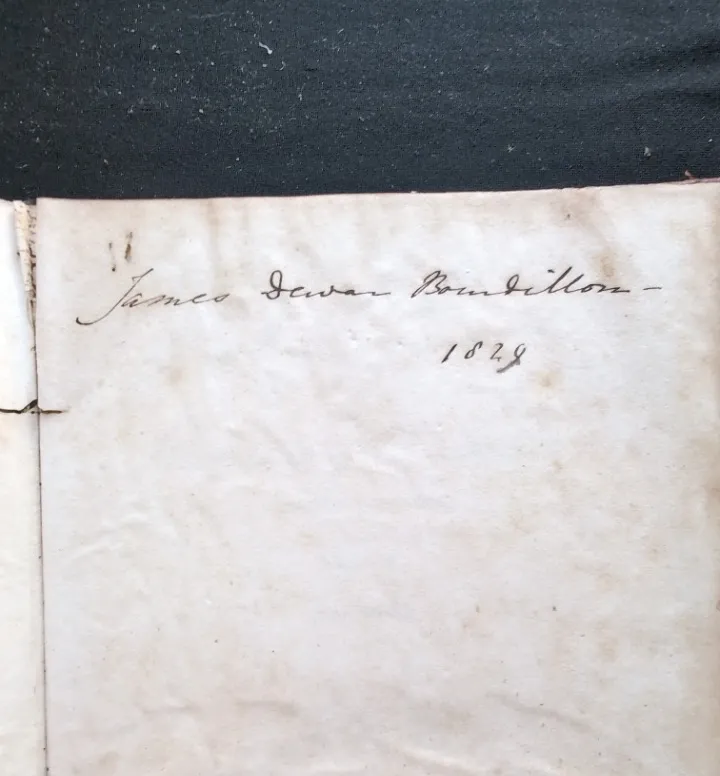 James Dewar Bourdillon –
1829